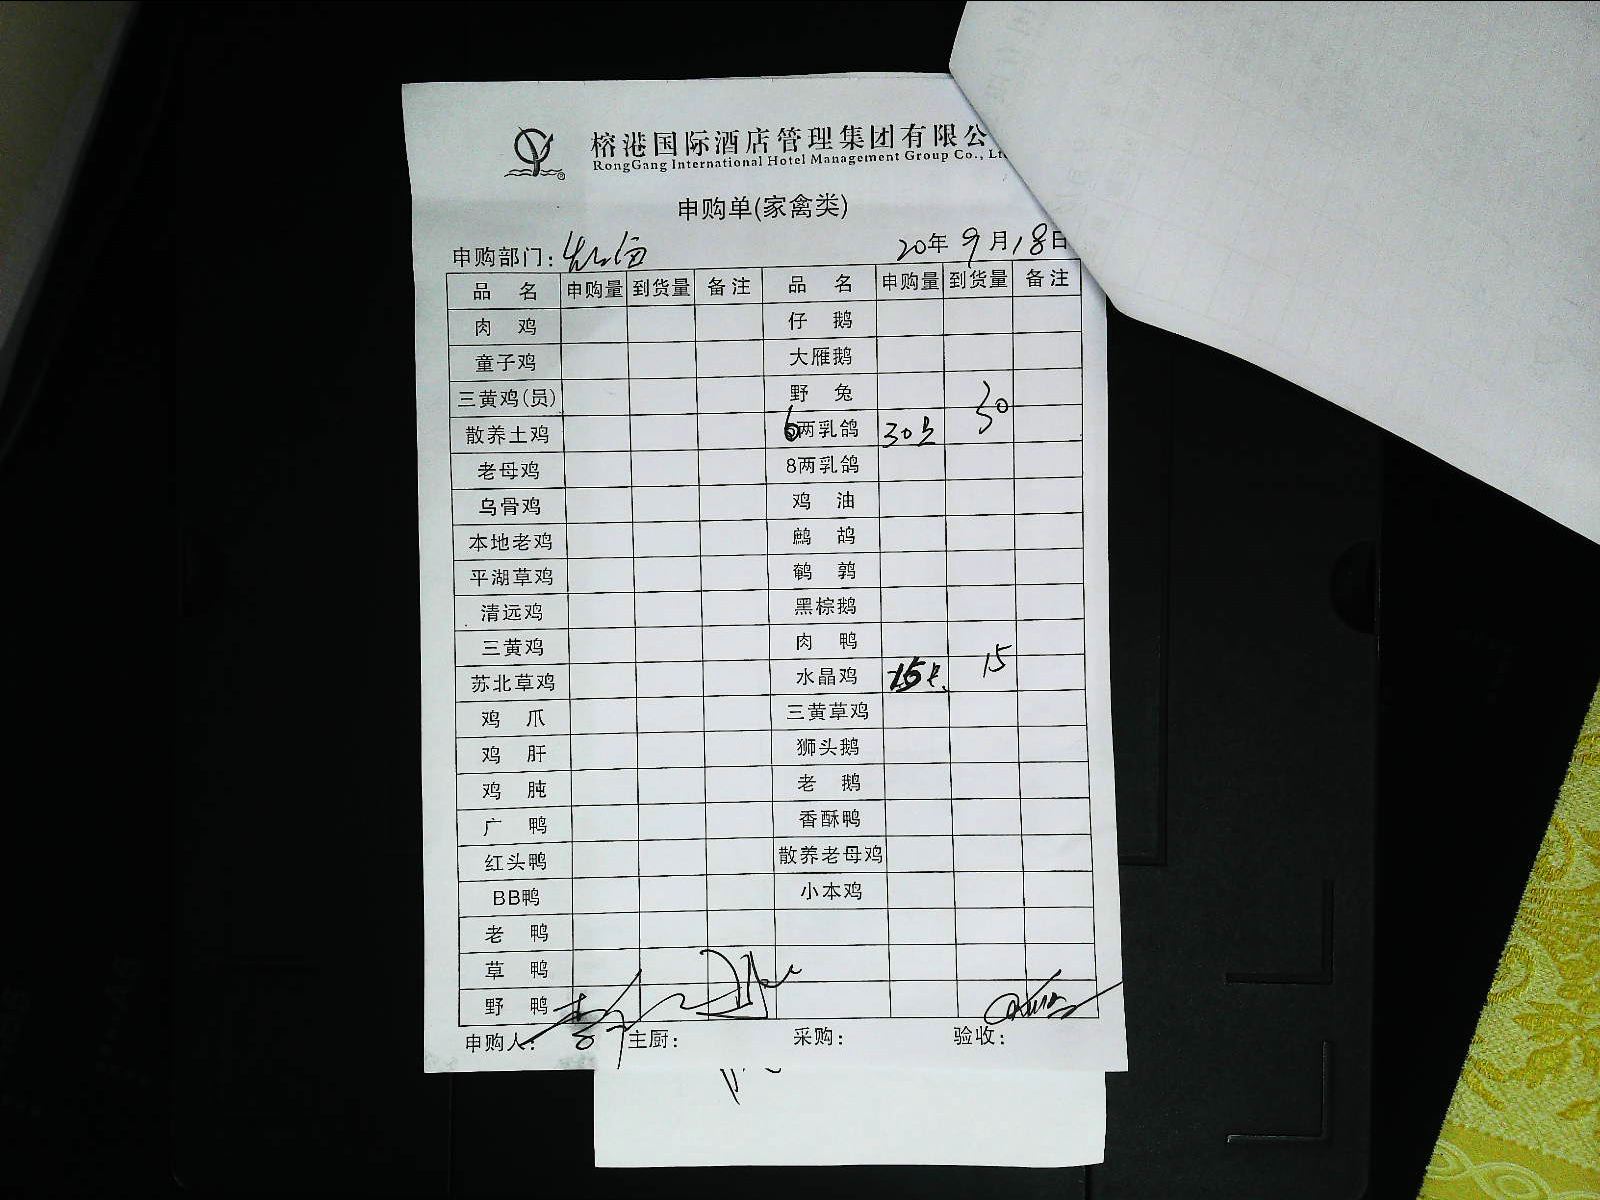 榕港国际酒店管理集团有限公
RongGang International Hotel Management Group Co., Lt
申购单(家禽类)
申购部门: 20年9月18日
品名 申购量 到货量 备注 品名 申购量 到货量 备注
肉鸡 仔鹅
童子鸡 大雁鹅
三黄鸡(员) 野兔
散养土鸡 6两乳鸽 30只 30
老母鸡 8两乳鸽
乌骨鸡 鸡油
本地老鸡 鹧鸪
平湖草鸡 鹌鹑
清远鸡 黑棕鹅
三黄鸡 肉鸭
苏北草鸡 水晶鸡 15只 15
鸡爪 三黄草鸡
鸡肝 狮头鹅
鸡肫 老鹅
广鸭 香酥鸭
红头鸭 散养老母鸡
BB鸭 小本鸡
老鸭
草鸭
野鸭
申购人: 主厨: 采购: 验收: